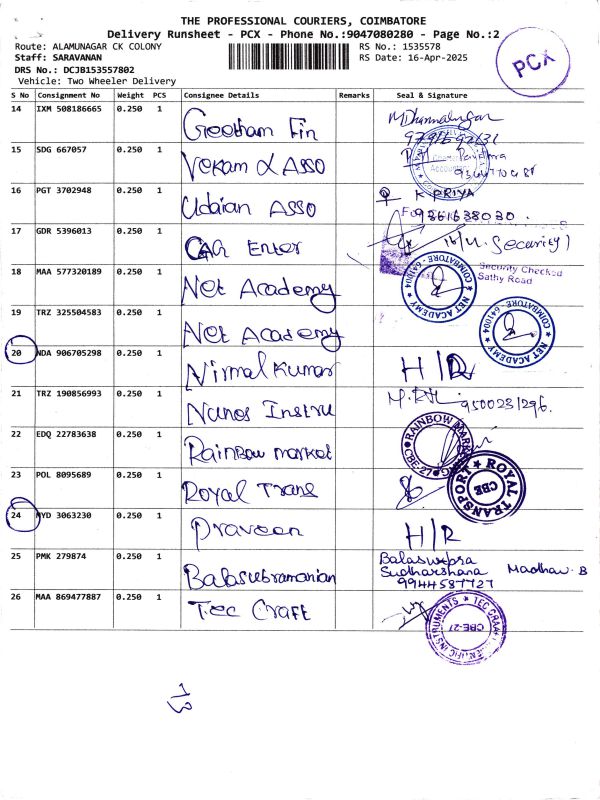 THE PROFESSIONAL COURIERS, COIMBATORE
Delivery Runsheet - PCX - Phone No.:9047080280 - Page No.:2
Route: ALAMUNAGAR CK COLONY
RS No.: 1535578
Staff: SARAVANAN
RS Date: 16-Apr-2025
DRS No.: DCJB153557802
Vehicle: Two Wheeler Delivery
PCX
S No Consignment No Weight PCS Consignee Details Remarks Seal & Signature
14 IXM 508186665 0.250 1 Geetham Fin
15 SDG 667057 0.250 1 Vekam & Asso
16 PGT 3702948 0.250 1 Udaian Asso K PRIYA
9361638030
17 GDR 5396013 0.250 1 Enter Security
18 MAA 577320189 0.250 1 Net Academy
Security Checked
Sathy Road
NET ACADEMY COIMBATORE - 641004
19 TRZ 325504583 0.250 1 Net Academy
NET ACADEMY COIMBATORE - 641004
20 NDA 906705298 0.250 1 Nirmal Kumar H/R
21 TRZ 190856993 0.250 1 Nanos Instru 9500231296.
22 EDQ 22783638 0.250 1 Rainbow market
RAINBOW MARK CBE-27
23 POL 8095689 0.250 1 Royal Trans
ROYAL TRANSPORT CBE
24 HYD 3063230 0.250 1 Praveen H/R
25 PMK 279874 0.250 1 Balasubramanian
Sudharshana Madhav. B
9944587727
26 MAA 869477887 0.250 1 Tec Craft
TEC CRAFT INSTRUMENTS CBE-27
13